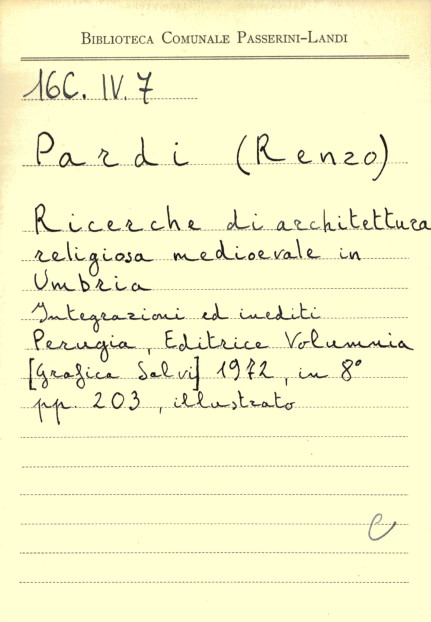 BIBLIOTECA COMUNALE PASSERINI-LANDI
16C. IV. 7
Pardi (Renzo)
Ricerche di architettura
religiosa medioevale in
Umbria
Integrazioni ed inediti
Perugia, Editrice Volumnia
[Grafica Salvi] 1972, in 8°
pp. 203, illustrato
C